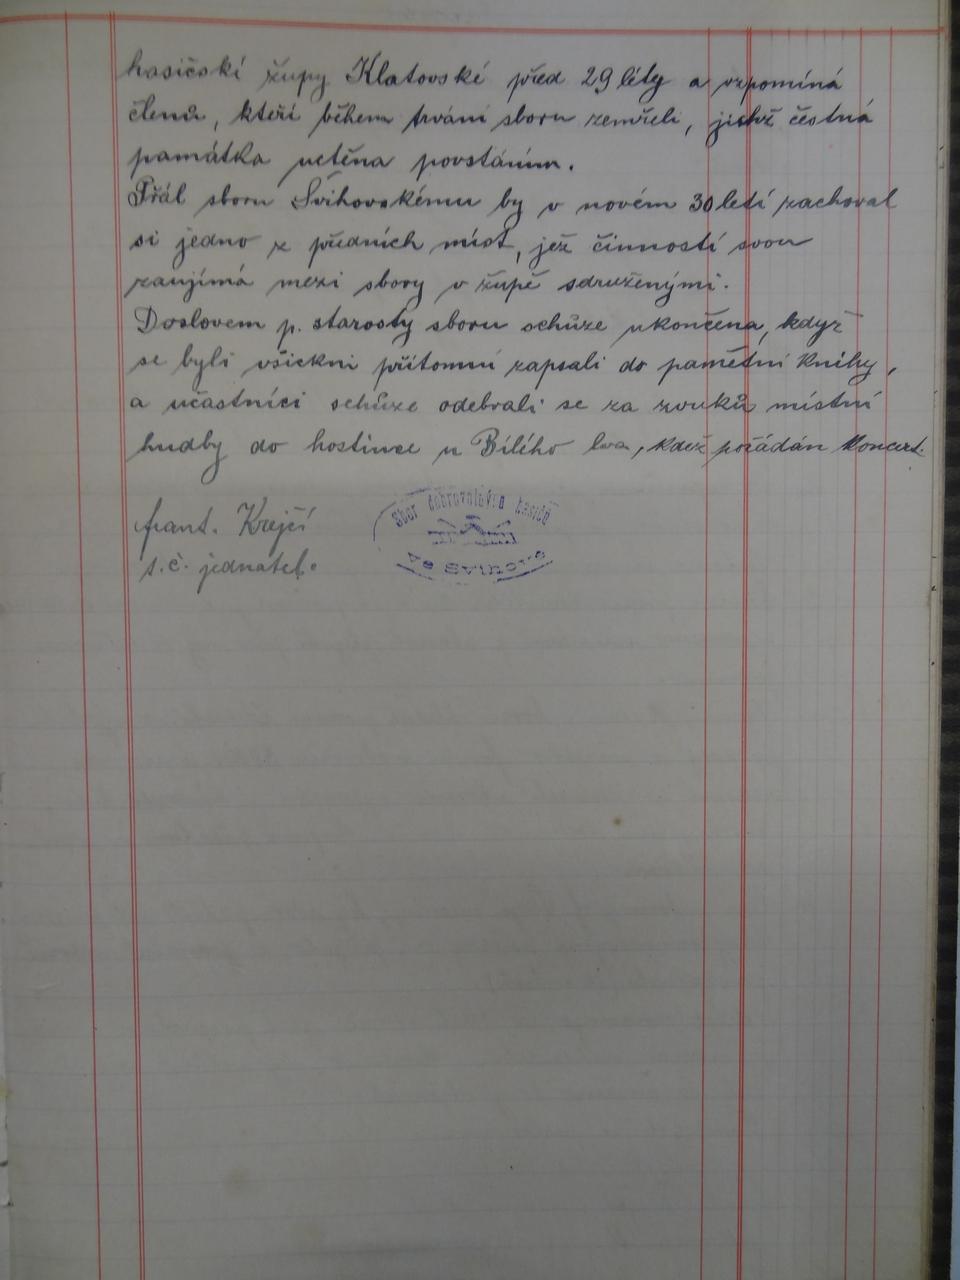 hasičskí župy Klatovské před 29 léty a vzpomíná
členů, kteří během trvání sboru zemřeli, jichž čestná
památka uctěna povstáním.
Přál sboru Švihovskému by v novém 30letí zachoval
si jedno z předních míst, jež činností svou
zaujímá mezi sbory v župě sdruženými.
Doslovem p. starosty sboru schůze ukončena, když
se byli všickni přítomní zapsali do pamětní knihy,
a učastníci schůze odebrali se za zvuků místní
hudby do hostince u Bílého lva, kdež pořádán koncert.
frant. Krejčí
t.č. jednatel.
Sbor dobrovolných hasičů
Ve Švihově